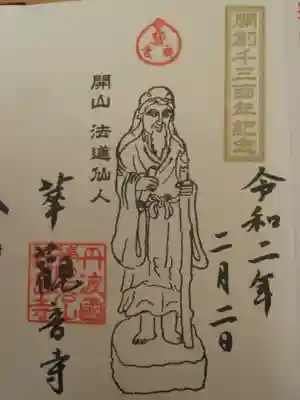 開創千三百年記念
令和二年
二月二日
開山 法道仙人
華観音寺
丹波國